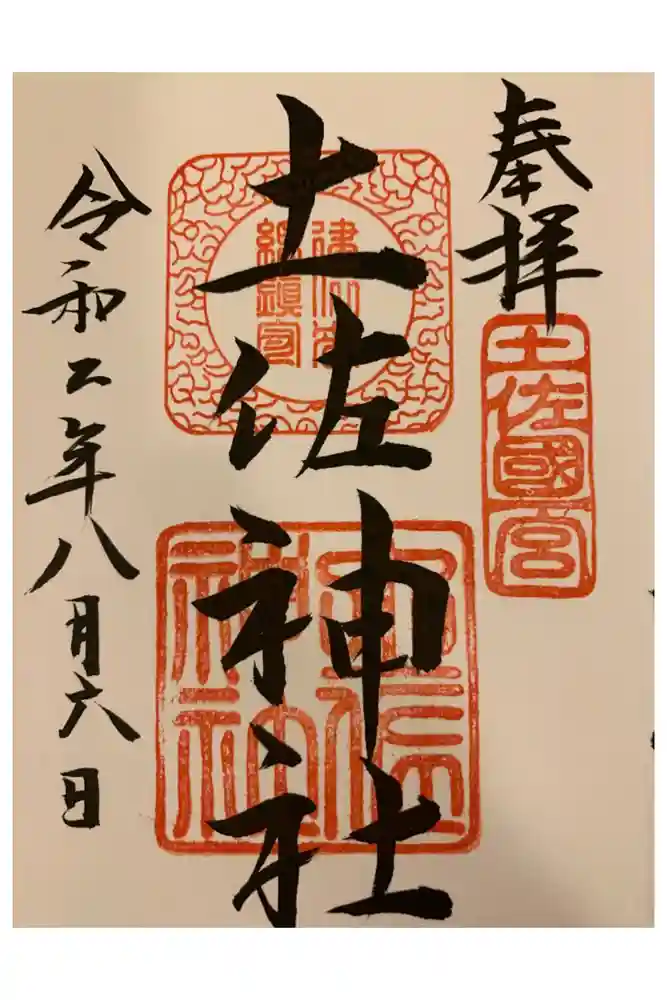 奉拝
土佐國一宮
土佐神社
令和二年八月六日